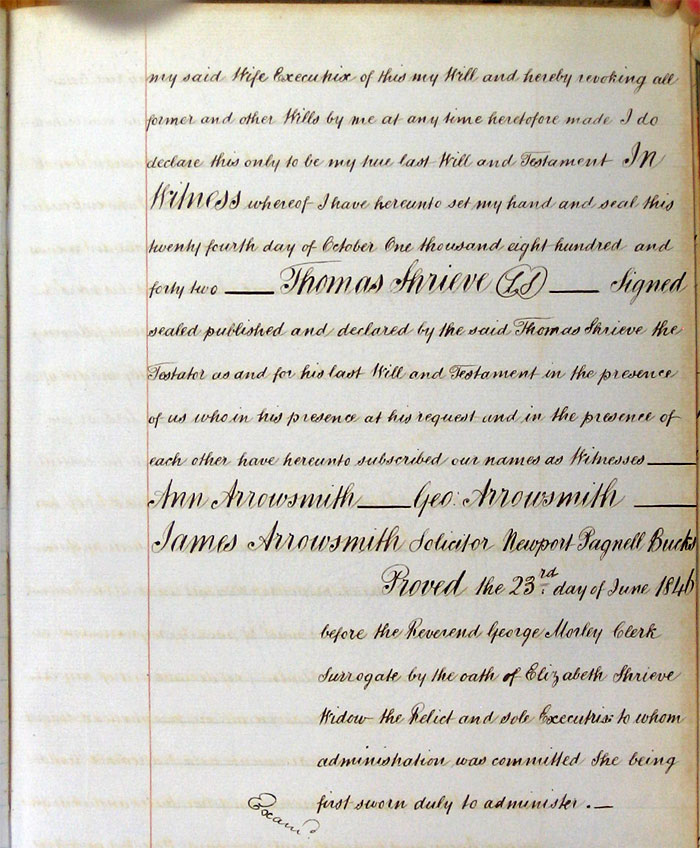 my said Wife Executrix of this my Will and hereby revoking all
former and other Wills by me at any time heretofore made I do
declare this only to be my true last Will and Testament In
Witness whereof I have hereunto set my hand and seal this
twenty fourth day of October One thousand eight hundred and
forty two — Thomas Shrieve (LS) — Signed
sealed published and declared by the said Thomas Shrieve the
Testator as and for his last Will and Testament in the presence
of us who in his presence at his request and in the presence of
each other have hereunto subscribed our names as Witnesses —
Ann Arrowsmith — Geo: Arrowsmith —
James Arrowsmith Solicitor Newport Pagnell Bucks
Proved the 23rd day of June 1846
before the Reverend George Morley Clerk
Surrogate by the oath of Elizabeth Shrieve
Widow the Relict and sole Executrix to whom
administration was committed She being
first sworn duly to administer. —
Examd